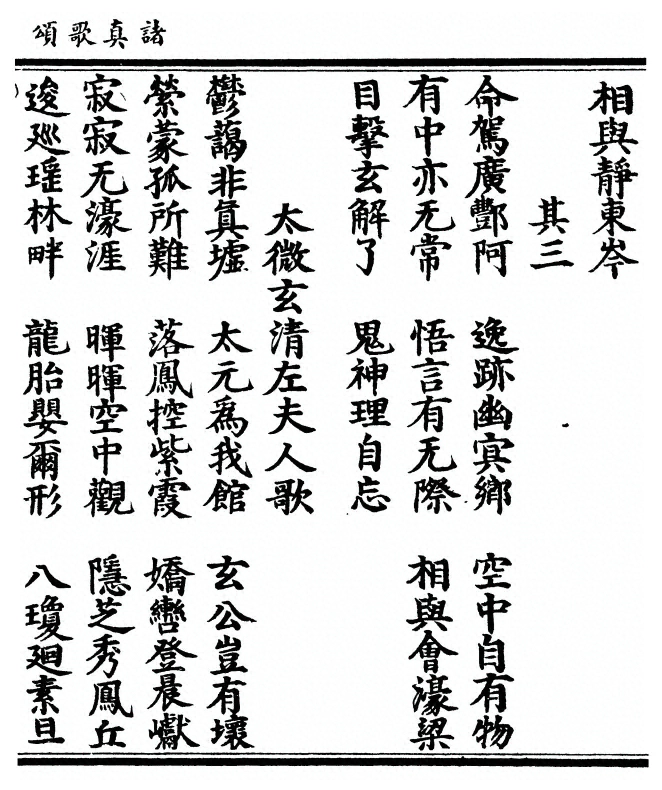 諸真歌頌
相與靜東岑
其三
命駕廣酆阿 逸跡幽冥鄉 空中自有物
有中亦无常 悟言有无際 相與會濠梁
目擊玄解了 鬼神理自忘
太微玄清左夫人歌
鬱藹非真墟 太元為我館 玄公豈有壞
縈蒙孤所難 落鳳控紫霞 矯轡登晨巘
寂寂无濠涯 暉暉空中觀 隱芝秀鳳丘
逡巡瑶林畔 龍胎嬰爾形 八瓊廻素旦